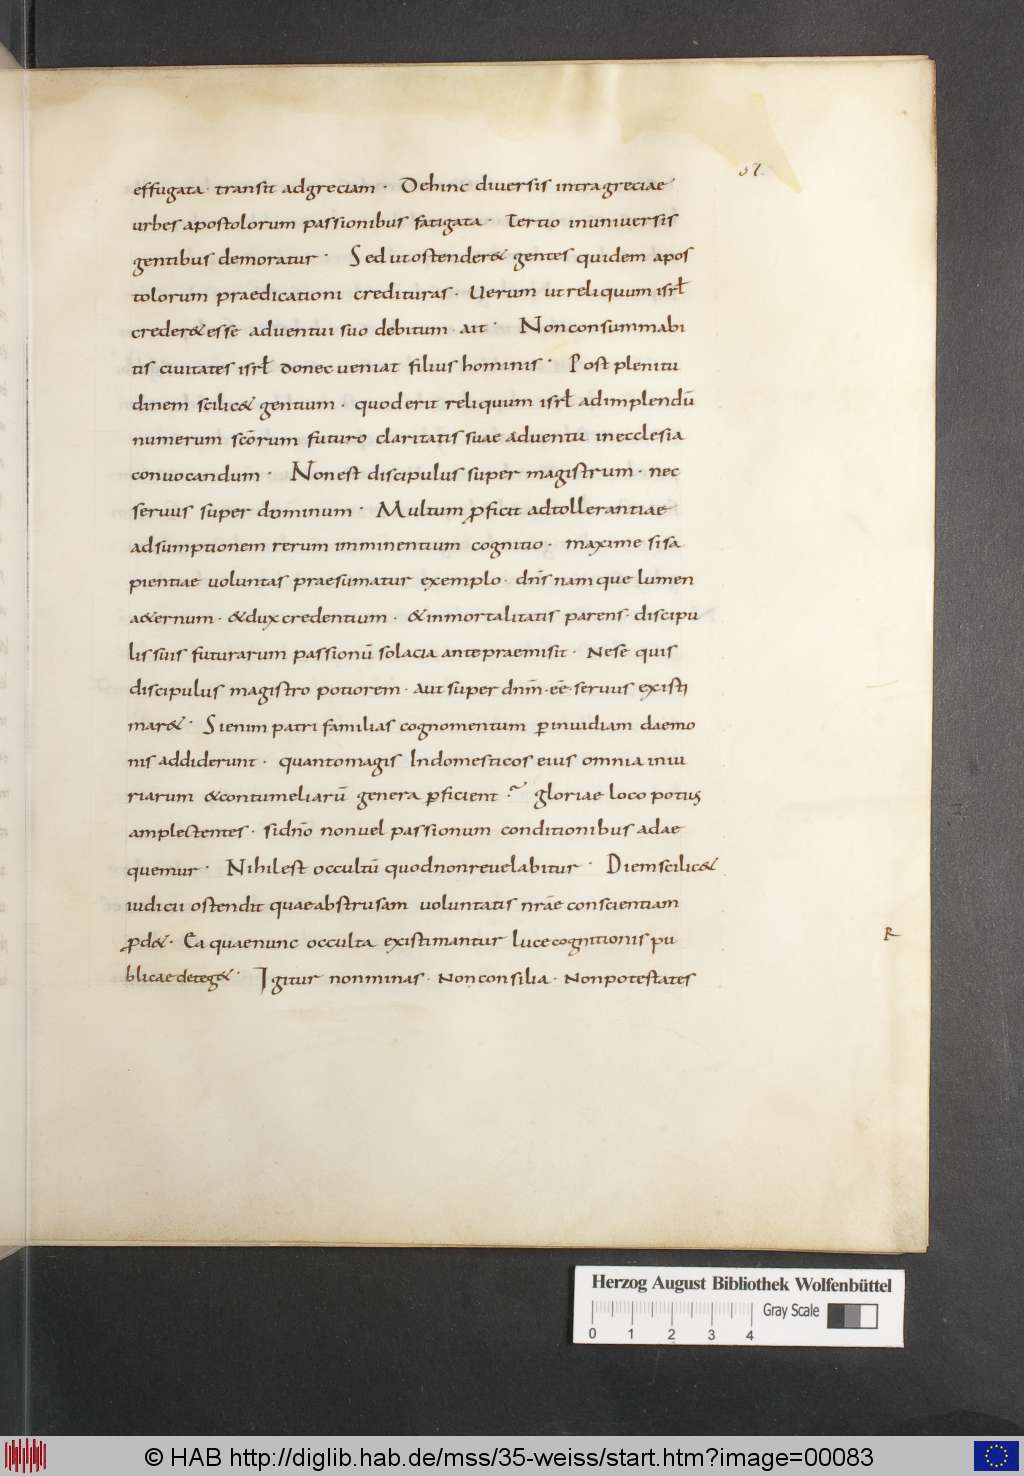 37.
effugata · transit adgreciam · Dehinc diversis intragreciae
urbes apostolorum passionibus fatigata · Tertio inuniversis
gentibus demoratur · Sed ut ostender& gentes quidem apos
tolorum praedicationi credituras · Uerum ut reliquum isrł
creder& esse adventui suo debitum · ait · Non consummabi
tis civitates isrł donec veniat filius hominis · Post plenitu
dinem scilic& gentium · quod erit reliquum isrł adimplendū
numerum scōrum futuro claritatis suae adventu in ecclesia
convocandum · Non est discipulus super magistrum · nec
servus super dominum · Multum ꝓficit ad tollerantiae
adsumptionem rerum imminentium cognitio · maxime si sa
pientiae voluntas praesumatur exemplo · dn̄s nam que lumen
a&ernum · & dux credentium · & inmortalitatis parens · discipu
lis suis futurarum passionū solacia ante praemisit · Ne se quis
discipulus magistro potiorem · aut super dn̄m · eē · servus existi
mar& · Si enim patri familias cognomentum ꝑ invidiam daemo
nis addiderunt · quanto magis In domesticos eius omnia iniu
riarum & contumeliarū genera ꝑficient · gloriae loco potius
amplectentes · si dn̄o non vel passionum conditionibus adae
quemur · Nihil est occultū quod non revelabitur · Diem scilic&
iudicii ostendit quae abstrusam voluntatis nrāe conscientiam
ꝓd& · Ea quae nunc occulta existimantur luce cognitionis pu
blicae deteg& · Igitur non minas · Non consilia · Non potestates
R
Herzog August Bibliothek Wolfenbüttel
Gray Scale
0 1 2 3 4
© HAB http://diglib.hab.de/mss/35-weiss/start.htm?image=00083